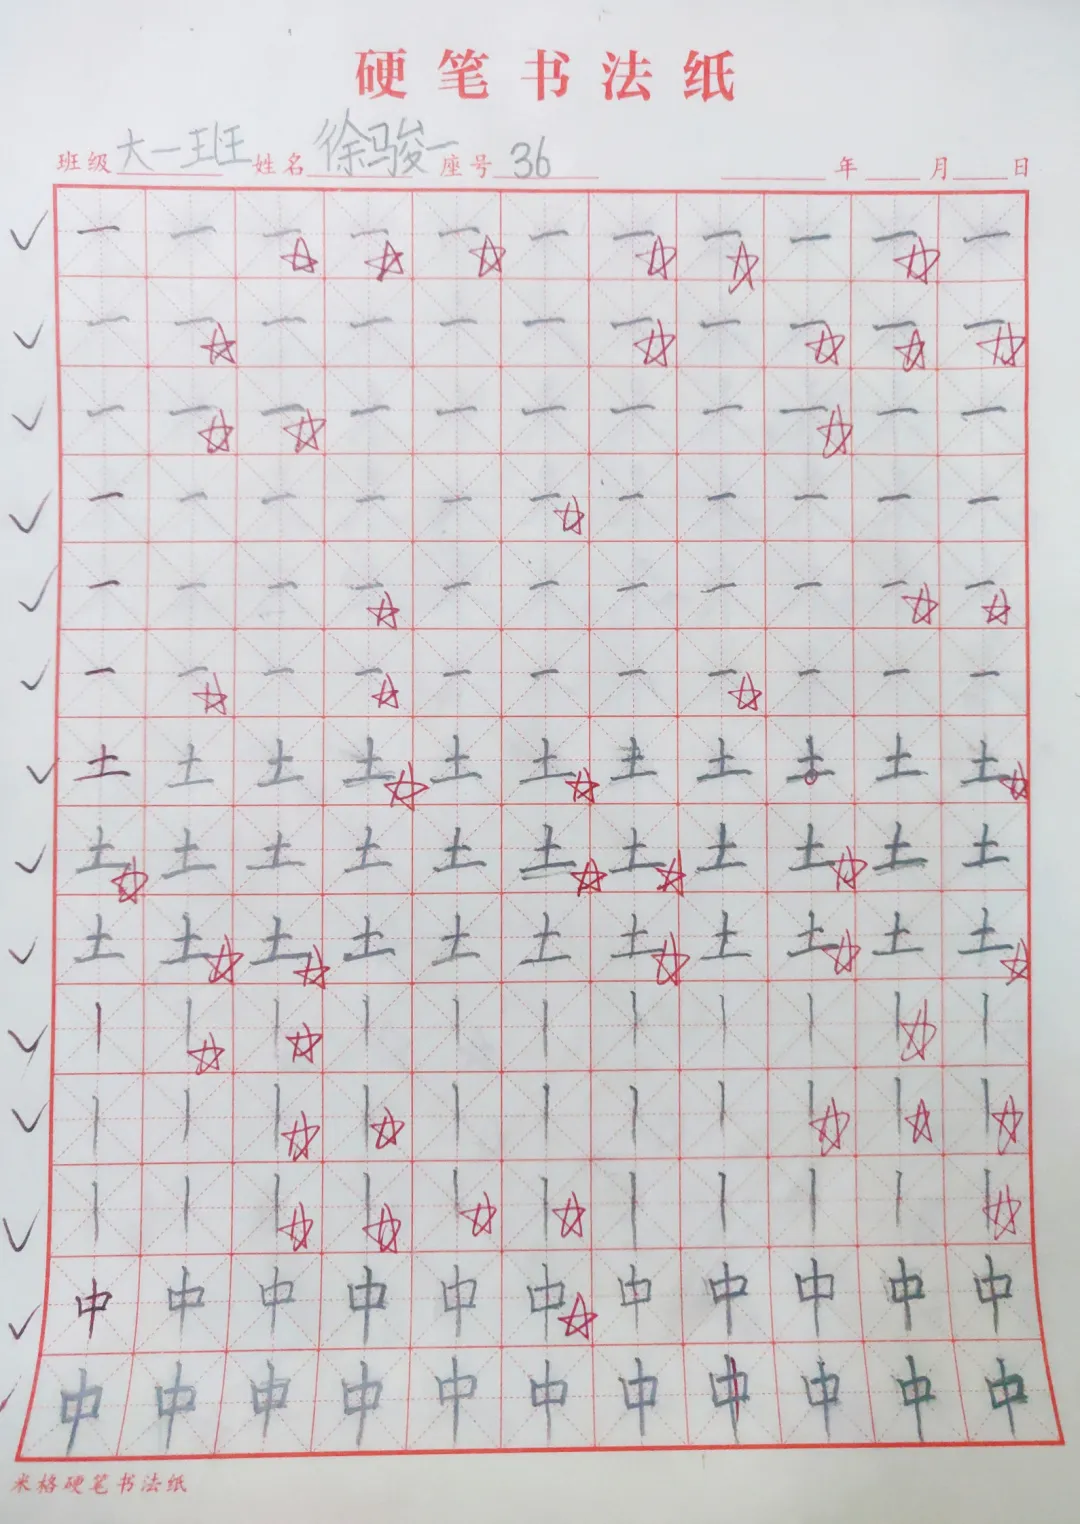 硬笔书法纸
班级 大一班 姓名 徐骏一 座号 36 年 月 日
一 一 一 一 一 一 一 一 一 一 一
一 一 一 一 一 一 一 一 一 一 一
一 一 一 一 一 一 一 一 一 一 一
一 一 一 一 一 一 一 一 一 一 一
一 一 一 一 一 一 一 一 一 一 一
一 一 一 一 一 一 一 一 一 一 一
土 土 土 土 土 土 土 土 土 土 土
土 土 土 土 土 土 土 土 土 土 土
土 土 土 土 土 土 土 土 土 土 土
丨 丨 丨 丨 丨 丨 丨 丨 丨 丨 丨
丨 丨 丨 丨 丨 丨 丨 丨 丨 丨 丨
丨 丨 丨 丨 丨 丨 丨 丨 丨 丨 丨
中 中 中 中 中 中 中 中 中 中 中
中 中 中 中 中 中 中 中 中 中 中
米格硬笔书法纸